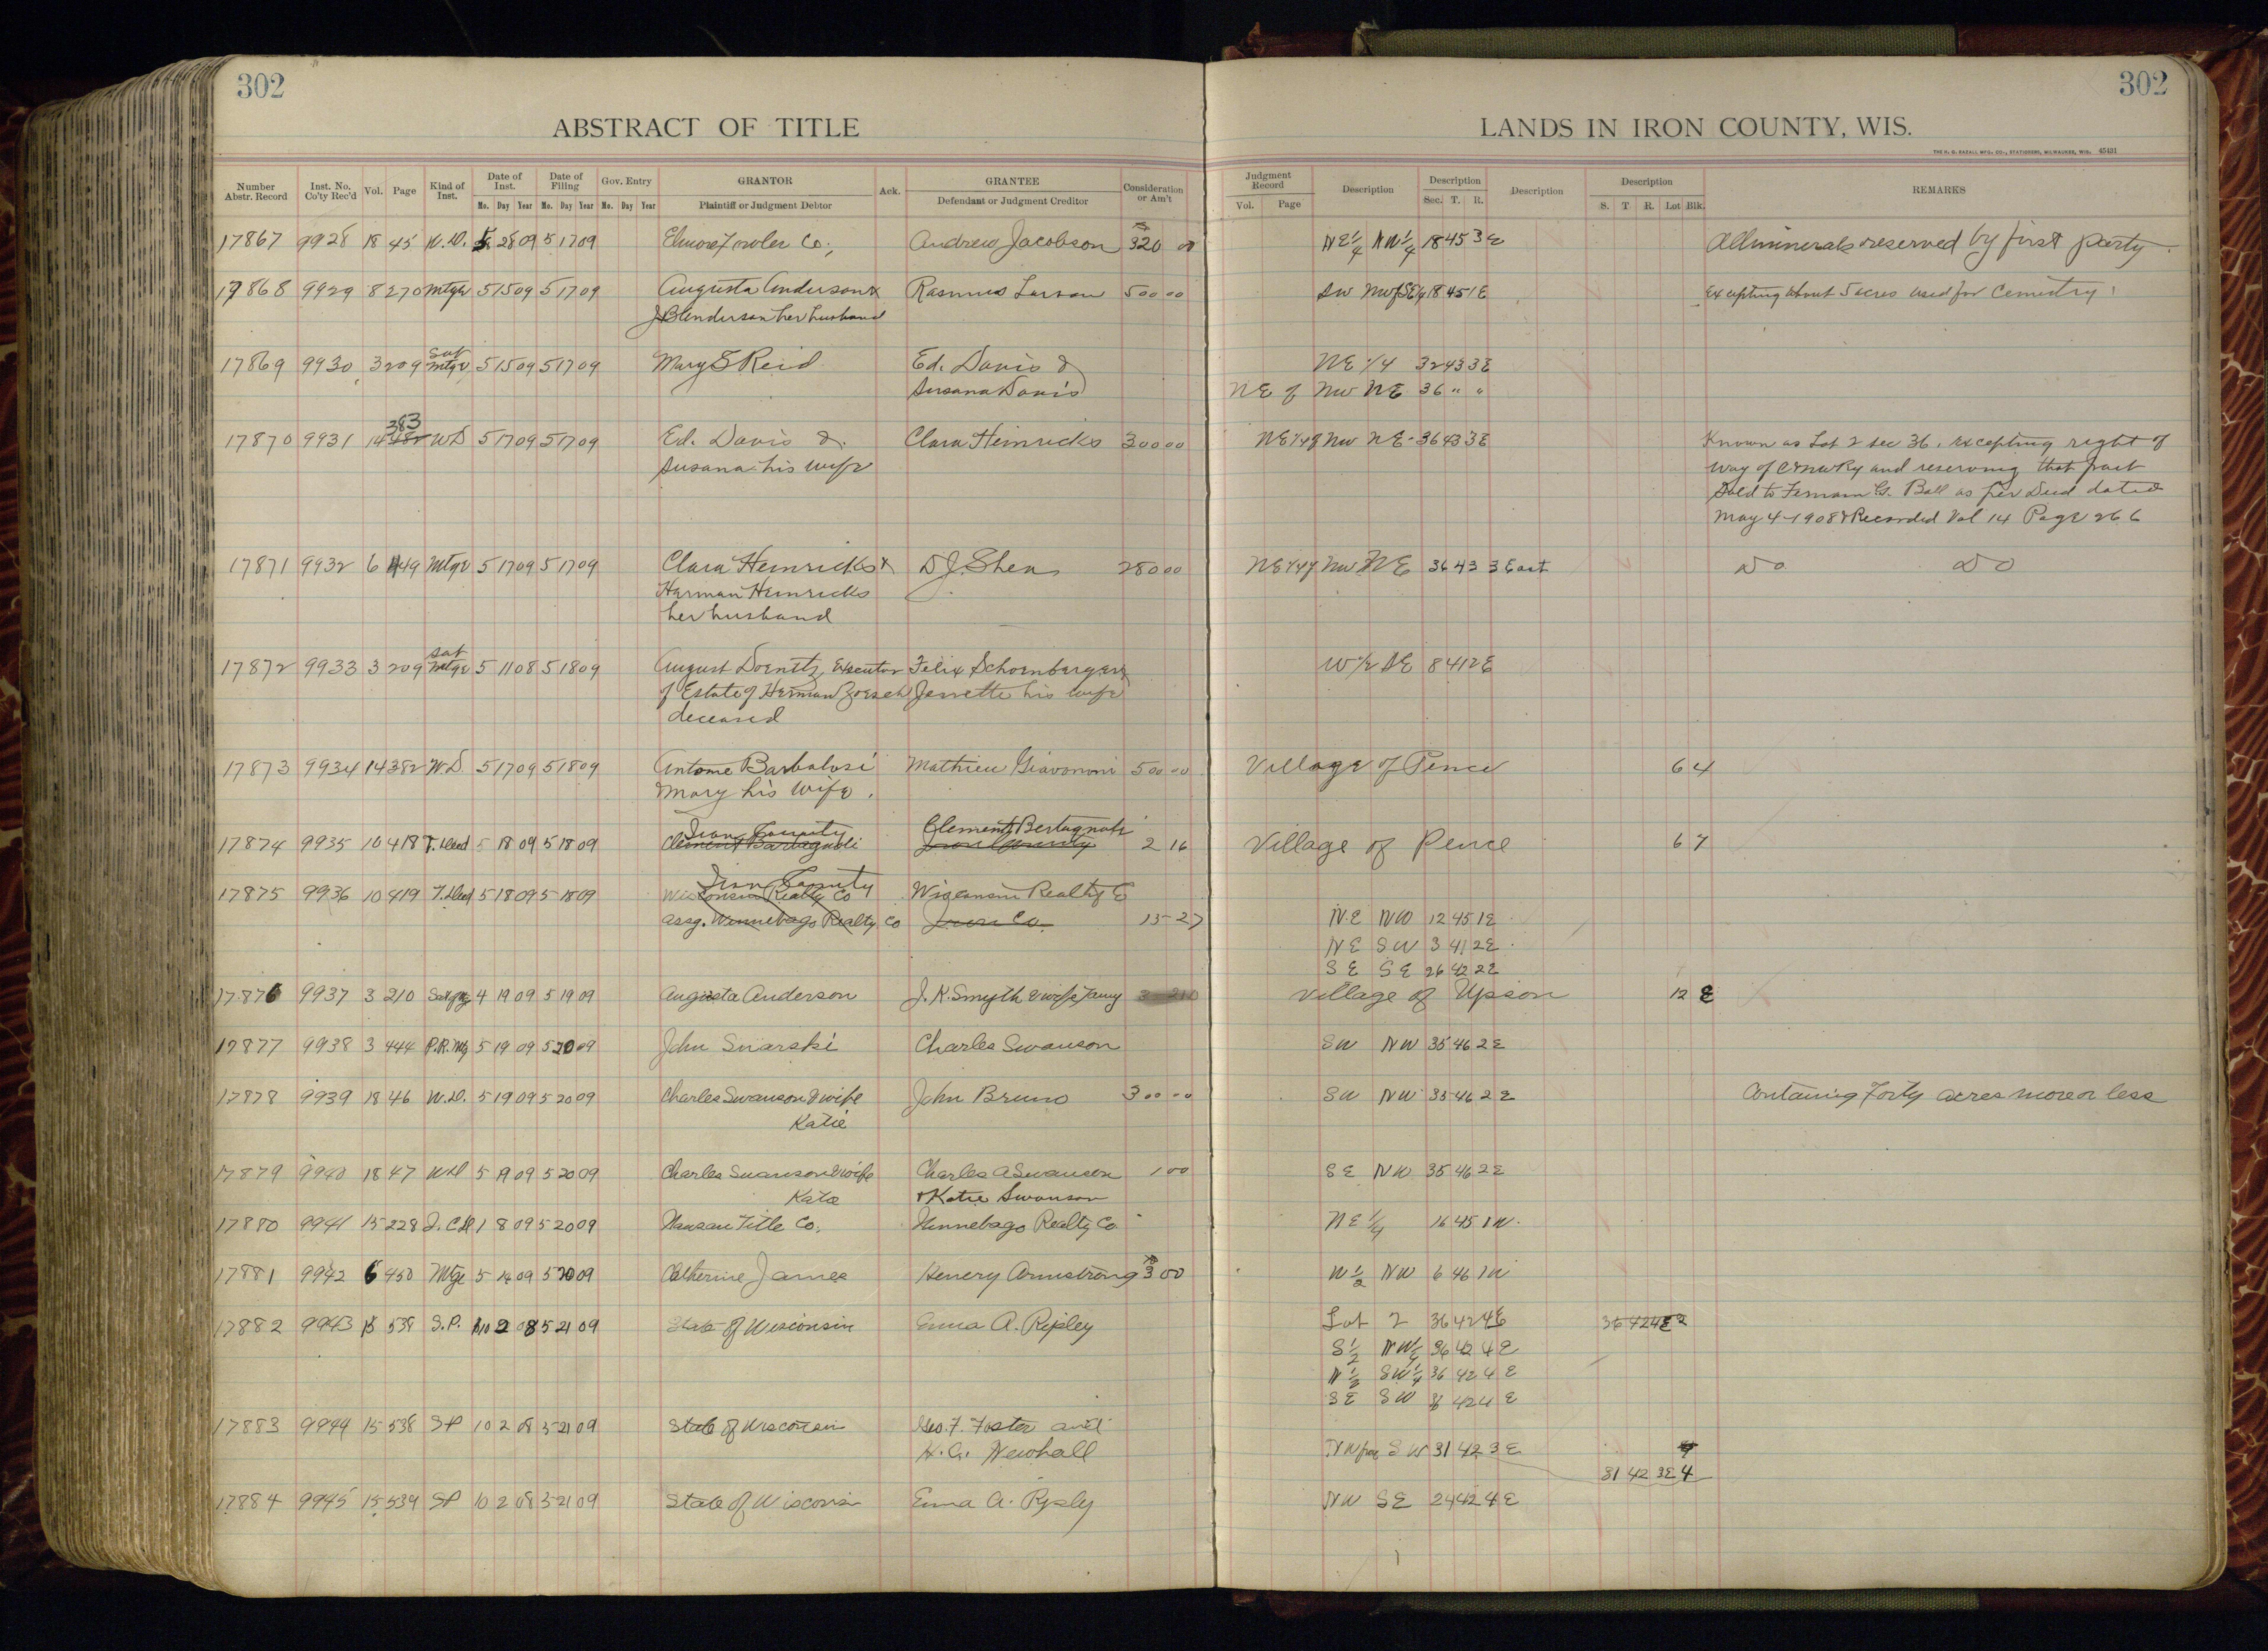 302
302
ABSTRACT OF TITLE
LANDS IN IRON COUNTY, WIS.
THE H. G. RAZALL MFG. CO., STATIONERS, MILWAUKEE, WIS. 45431
Number Abstr. Record Inst. No. Co'ty Rec'd Vol. Page Kind of Inst. Date of Inst. Mo. Day Year Date of Filing Mo. Day Year Gov. Entry Mo. Day Year GRANTOR Plaintiff or Judgment Debtor Ack. GRANTEE Defendant or Judgment Creditor Consideration or Am't
Judgment Record Vol. Page Description Description Sec. T. R. Description Description S. T R. Lot Blk. REMARKS
17867 9928 18 45 W.D. 28 09 5 17 09 Elmore Fowler Co., Andrew Jacobson 320 00 NE 1/4 NW 1/4 18 45 3 E All minerals reserved by first party.
17868 9929 8 270 Mtge 5 15 09 5 17 09 Augusta Anderson & Rasmus Larson 500 00 SW NW of SE 1/4 18 45 1 E Excepting About 5 acres used for Cemetry
her husband
Sat
17869 9930 3 209 Mtge 5 15 09 5 17 09 Mary S Reid Ed. Davis & NE 1/4 32 43 3 E
Susana Davis NE of NW NE 36 " "
383
17870 9931 14 482 WD 5 17 09 5 17 09 Ed. Davis & Clara Heinricks 300 00 NE 1/4 of NW NE 36 43 3 E Known as Lot 2 sec 36, excepting right of
Susana his wife way of C & NW Ry and reserving that part
Sold to G. Ball as per Deed dated
May 4-1908 & Recorded Vol 14 Page 266
17871 9932 6 449 Mtge 5 17 09 5 17 09 Clara Heinricks & D J. Shea 280 00 NE 1/4 of NW NE 36 43 3 East Do Do
Harman Heinricks
her husband
Sat
17872 9933 3 209 Mtge 5 11 08 5 18 09 August Doenitz, Executor Felix Schoenberger & W 1/2 SE 8 41 2 E
of Estate of Herman Zoesch Jennette his wife
deceased
17873 9934 14 382 W.D. 5 17 09 5 18 09 Antome Barbalosi Mathieu Giavononi 500 00 Village of Pence 6 4
& Mary his wife.
Iron County Clement Bertagnoli
17874 9935 10 418 T. Deed 5 18 09 5 18 09 Clement Bartagnoli Iron County 2 16 Village of Pence 6 7
Iron County
17875 9936 10 419 T. Deed 5 18 09 5 18 09 Wisconsin Realty Co Wisconsin Realty Co
assg. Winnebago Realty Co Iron Co. 15 27 NE NW 12 45 1 E
NE SW 3 41 2 E
SE SE 26 42 2 E
17876 9937 3 210 4 19 09 5 19 09 Augusta Anderson J. K. Smyth & wife Village of Upson 12 E
17877 9938 3 444 P.R. Mtg 5 19 09 5 20 09 John Charles Swanson SW NW 35 46 2 E
17878 9939 18 46 W.D. 5 19 09 5 20 09 Charles Swanson & wife John Bruno 300 00 SW NW 35 46 2 E Containing Forty acres more or less
Katie
17879 9940 18 47 WD 5 19 09 5 20 09 Charles Swanson & wife Charles A Swanson 1 00 SE NW 35 46 2 E
Katie & Katie Swanson
17880 9941 15 228 1 8 09 5 20 09 Title Co. Winnebago Realty Co. NE 1/4 16 45 1 W.
17881 9942 6 450 Mtge 5 09 5 20 09 Catherine James Henery Armstrong 300 W 1/2 NW 6 46 1 W
17882 9943 15 538 S.P. 10 2 08 5 21 09 State of Wisconsin Emma A. Ripley Lot 2 36 42 4 E 36 42 4 E 2
S 1/2 NW 1/4 36 42 4 E
N 1/2 SW 1/4 36 42 4 E
SE SW 36 42 4 E
17883 9944 15 538 SP 10 2 08 5 21 09 State of Wisconsin Geo. F. Foster and
Newhall SW 31 42 3 E
31 42 3E 4
17884 9945 15 539 SP 10 2 08 5 21 09 State of Wisconsin Emma A. Ripley NW SE 24 42 4 E